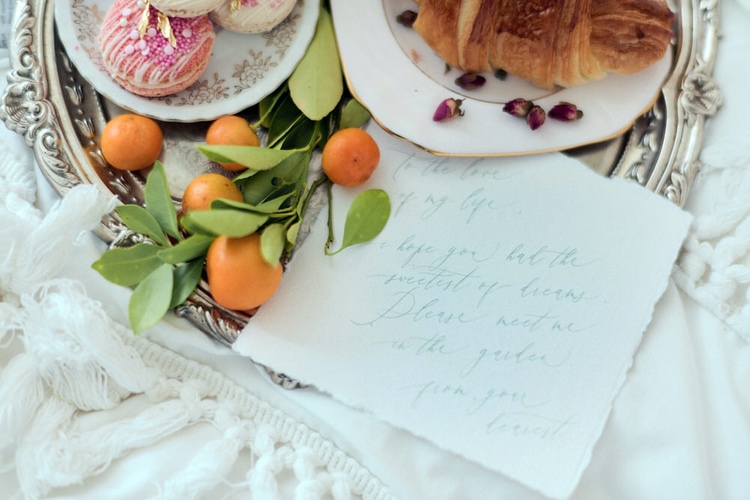 To the love
of my life,
i hope you had the
sweetest of dreams.
Please meet me
in the garden
from your
dearest